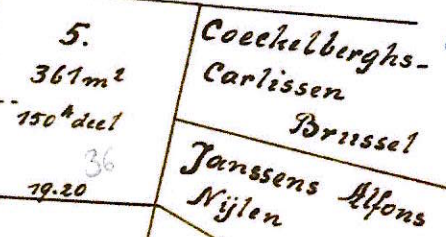 5.
361m²
150ᵉ deel
36
19.20
Coeckelberghs-
Carlissen
Brussel
Janssens Alfons
Nijlen